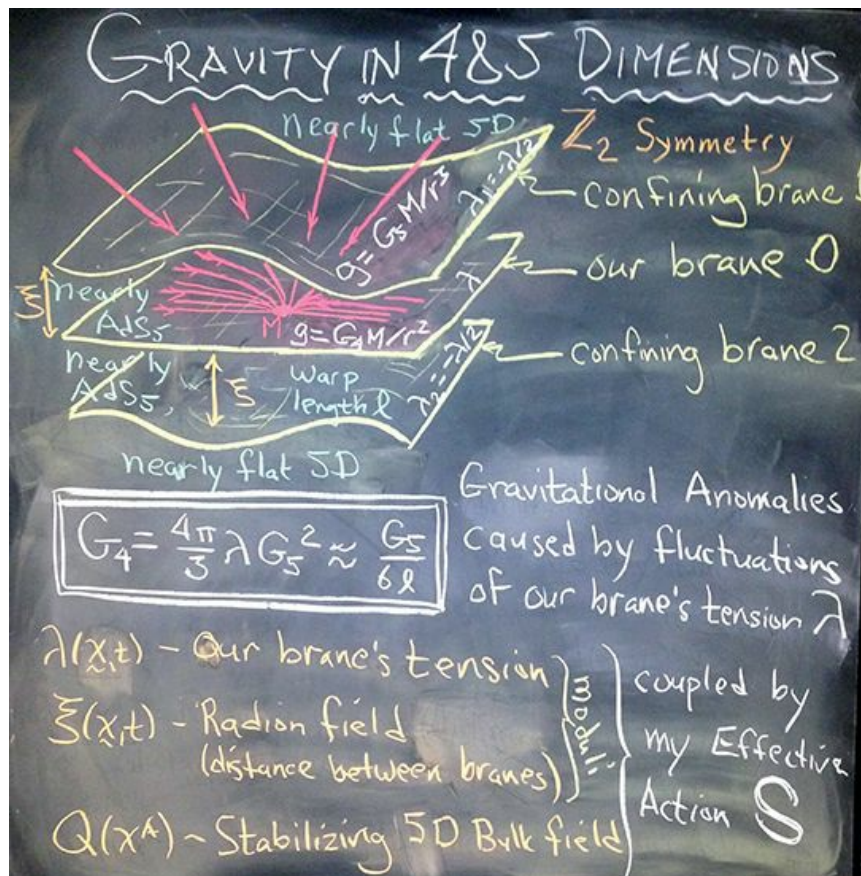 GRAVITY IN 4&5 DIMENSIONS
nearly flat 5D
Z₂ Symmetry
confining brane
λ₁=-λ/2
g=G₅M/r³
our brane 0
λ
ξ
nearly
AdS₅
M
g=G₄M/r²
confining brane 2
nearly
AdS₅
ξ
warp
length ℓ
λ₂=-λ/2
nearly flat 5D
G₄ = 4π/3 λ G₅² ≈ G₅/6ℓ
Gravitational Anomalies
caused by fluctuations
of our brane's tension λ
λ(x,t) - Our brane's tension
ξ(x,t) - Radion field
(distance between branes)
moduli
Q(xᴬ) ~ Stabilizing 5D Bulk field
coupled by
my Effective
Action S